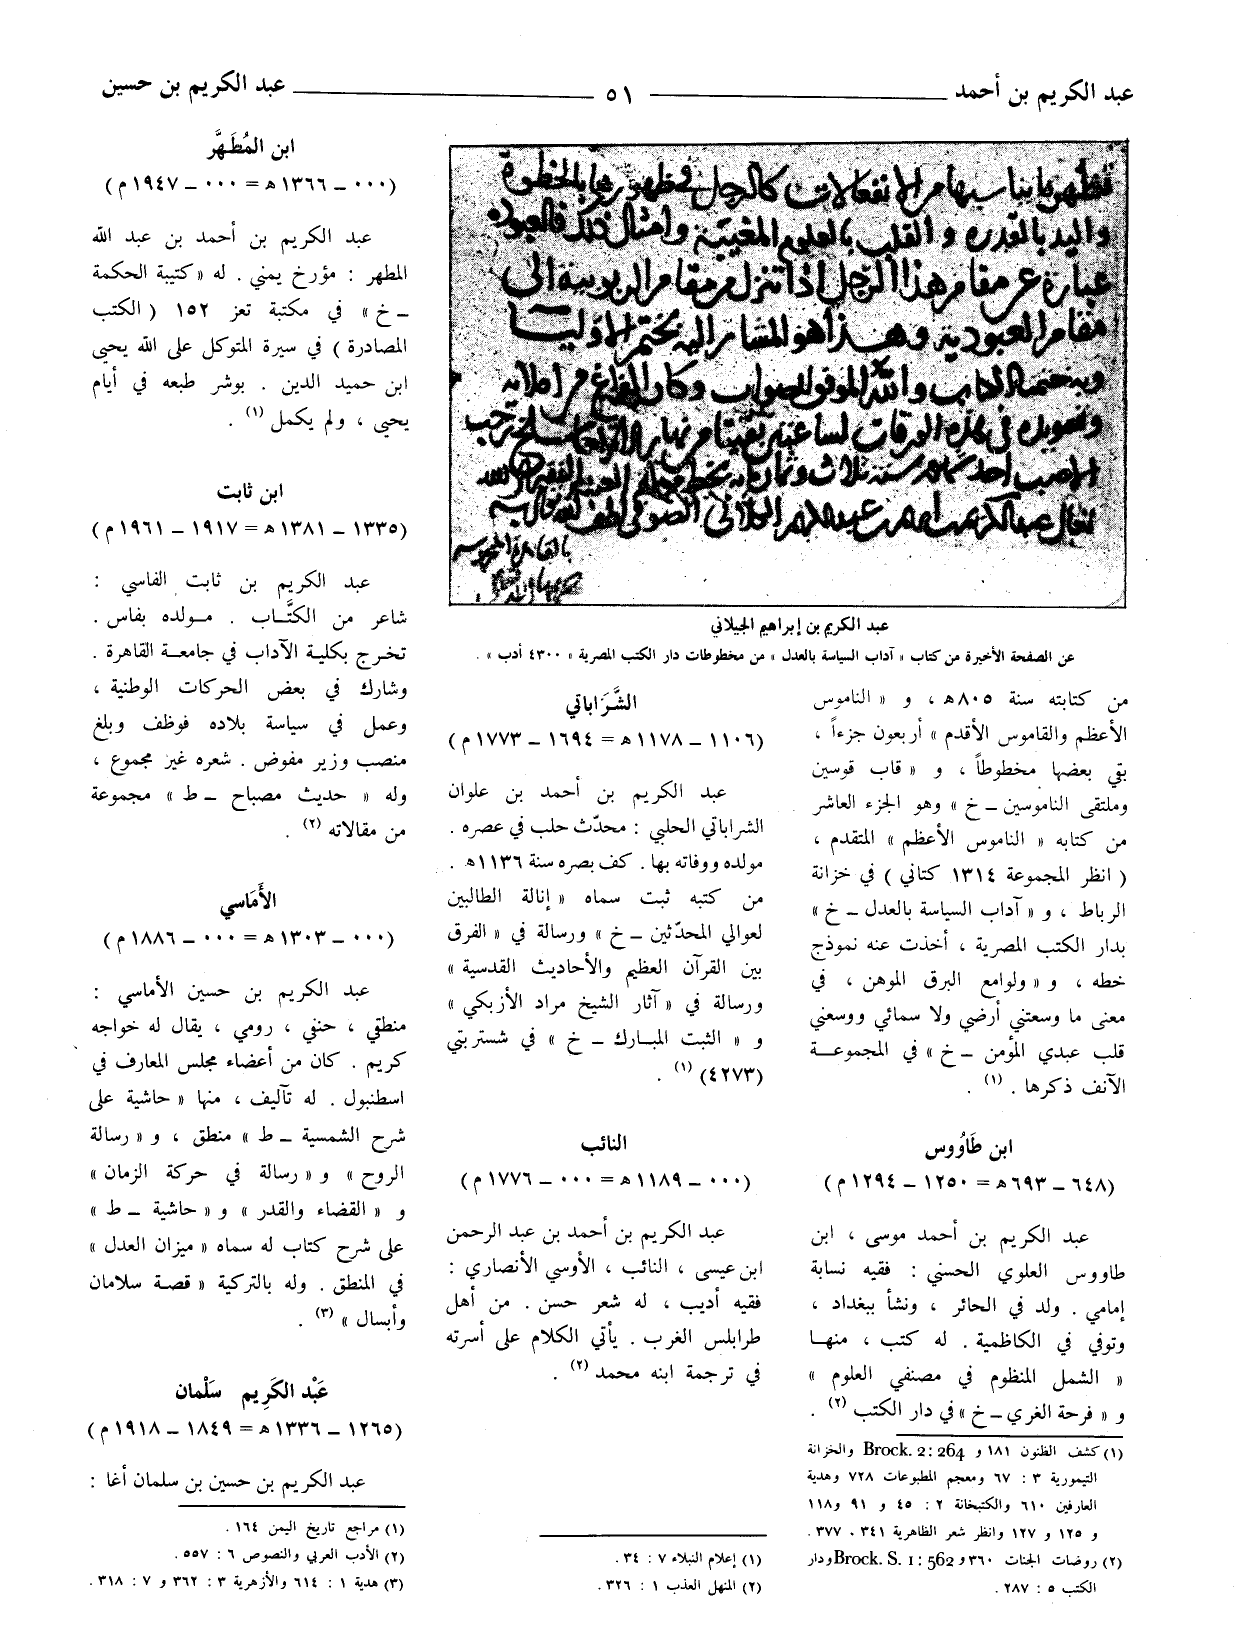 عبد الكريم بن أحمد ٥١ عبد الكريم بن حسين
عبد الكريم بن إبراهيم الجيلاني
عن الصفحة الأخيرة من كتاب « آداب السياسة بالعدل » من مخطوطات دار الكتب المصرية « ٤٣٠٠ أدب » .
من كتابته سنة ٨٠٥ﻫ ، و « الناموس
الأعظم والقاموس الأقدم » أربعون جزءاً ،
بقي بعضها مخطوطاً ، و « قاب قوسين
وملتقى الناموسين ـ خ » وهو الجزء العاشر
من كتابه « الناموس الأعظم » المتقدم ،
( انظر المجموعة ١٣١٤ كتاني ) في خزانة
الرباط ، و « آداب السياسة بالعدل ـ خ »
بدار الكتب المصرية ، أخذت عنه نموذج
خطه ، و « ولوامع البرق الموهن ، في
معنى ما وسعتني أرضي ولا سمائي ووسعني
قلب عبدي المؤمن ـ خ » في المجموعة
الآنف ذكرها . (١) .
ابن طَاوُوس
(٦٤٨ ـ ٦٩٣ ﻫ = ١٢٥٠ ـ ١٢٩٤ م)
عبد الكريم بن أحمد موسى ، ابن
طاووس العلوي الحسني : فقيه نسابة
إمامي . ولد في الحائر ، ونشأ ببغداد ،
وتوفي في الكاظمية . له كتب ، منها
« الشمل المنظوم في مصنفي العلوم »
و « فرحة الغري ـ خ » في دار الكتب (٢) .
(١) كشف الظنون ١٨١ و Brock. 2: 264 والخزانة
التيمورية ٣ : ٦٧ ومعجم المطبوعات ٧٢٨ وهدية
العارفين ٦١٠ والكتبخانة ٢ : ٤٥ و ٩١ و١١٨
و ١٢٥ و ١٢٧ وانظر شعر الظاهرية ٣٤١ ، ٣٧٧ .
(٢) روضات الجنات ٣٦٠ و Brock. S. 1: 562 ودار
الكتب ٥ : ٢٨٧ .
الشَّرَاباتي
(١١٠٦ ـ ١١٧٨ ﻫ = ١٦٩٤ ـ ١٧٧٣ م)
عبد الكريم بن أحمد بن علوان
الشراباتي الحلبي : محدّث حلب في عصره .
مولده ووفاته بها . كف بصره سنة ١١٣٦ﻫ .
من كتبه ثبت سماه « إنالة الطالبين
لعوالي المحدّثين ـ خ » ورسالة في « الفرق
بين القرآن العظيم والأحاديث القدسية »
ورسالة في « آثار الشيخ مراد الأزبكي »
و « الثبت المبارك ـ خ » في شستربتي
(٤٢٧٣) (١) .
النائب
(٠٠٠ ـ ١١٨٩ ﻫ = ٠٠٠ ـ ١٧٧٦ م)
عبد الكريم بن أحمد بن عبد الرحمن
ابن عيسى ، النائب ، الأوسي الأنصاري :
فقيه أديب ، له شعر حسن . من أهل
طرابلس الغرب . يأتي الكلام على أسرته
في ترجمة ابنه محمد (٢) .
(١) إعلام النبلاء ٧ : ٣٤ .
(٢) المنهل العذب ١ : ٣٢٦ .
ابن المُطَهَّر
(٠٠٠ ـ ١٣٦٦ ﻫ = ٠٠٠ ـ ١٩٤٧ م)
عبد الكريم بن أحمد بن عبد الله
المطهر : مؤرخ يمني . له « كتيبة الحكمة
ـ خ » في مكتبة تعز ١٥٢ ( الكتب
المصادرة ) في سيرة المتوكل على الله يحيى
ابن حميد الدين . بوشر طبعه في أيام
يحيى ، ولم يكمل (١) .
ابن ثابت
(١٣٣٥ ـ ١٣٨١ ﻫ = ١٩١٧ ـ ١٩٦١ م)
عبد الكريم بن ثابت الفاسي :
شاعر من الكتَّاب . مولده بفاس .
تخرج بكلية الآداب في جامعة القاهرة .
وشارك في بعض الحركات الوطنية ،
وعمل في سياسة بلاده فوظف وبلغ
منصب وزير مفوض . شعره غير مجموع ،
وله « حديث مصباح ـ ط » مجموعة
من مقالاته (٢) .
الأَمَاسي
(٠٠٠ ـ ١٣٠٣ ﻫ = ٠٠٠ ـ ١٨٨٦ م)
عبد الكريم بن حسين الأماسي :
منطقي ، حنفي ، رومي ، يقال له خواجه
كريم . كان من أعضاء مجلس المعارف في
اسطنبول . له تآليف ، منها « حاشية على
شرح الشمسية ـ ط » منطق ، و « رسالة
الروح » و « رسالة في حركة الزمان »
و « القضاء والقدر » و « حاشية ـ ط »
على شرح كتاب له سماه « ميزان العدل »
في المنطق . وله بالتركية « قصة سلامان
وأبسال » (٣) .
عَبْد الكَرِيم سَلْمان
(١٢٦٥ ـ ١٣٣٦ ﻫ = ١٨٤٩ ـ ١٩١٨ م)
عبد الكريم بن حسين بن سلمان أغا :
(١) مراجع تاريخ اليمن ١٦٤ .
(٢) الأدب العربي والنصوص ٦ : ٥٥٧ .
(٣) هدية ١ : ٦١٤ والأزهرية ٣ : ٣٦٢ و ٧ : ٣١٨ .